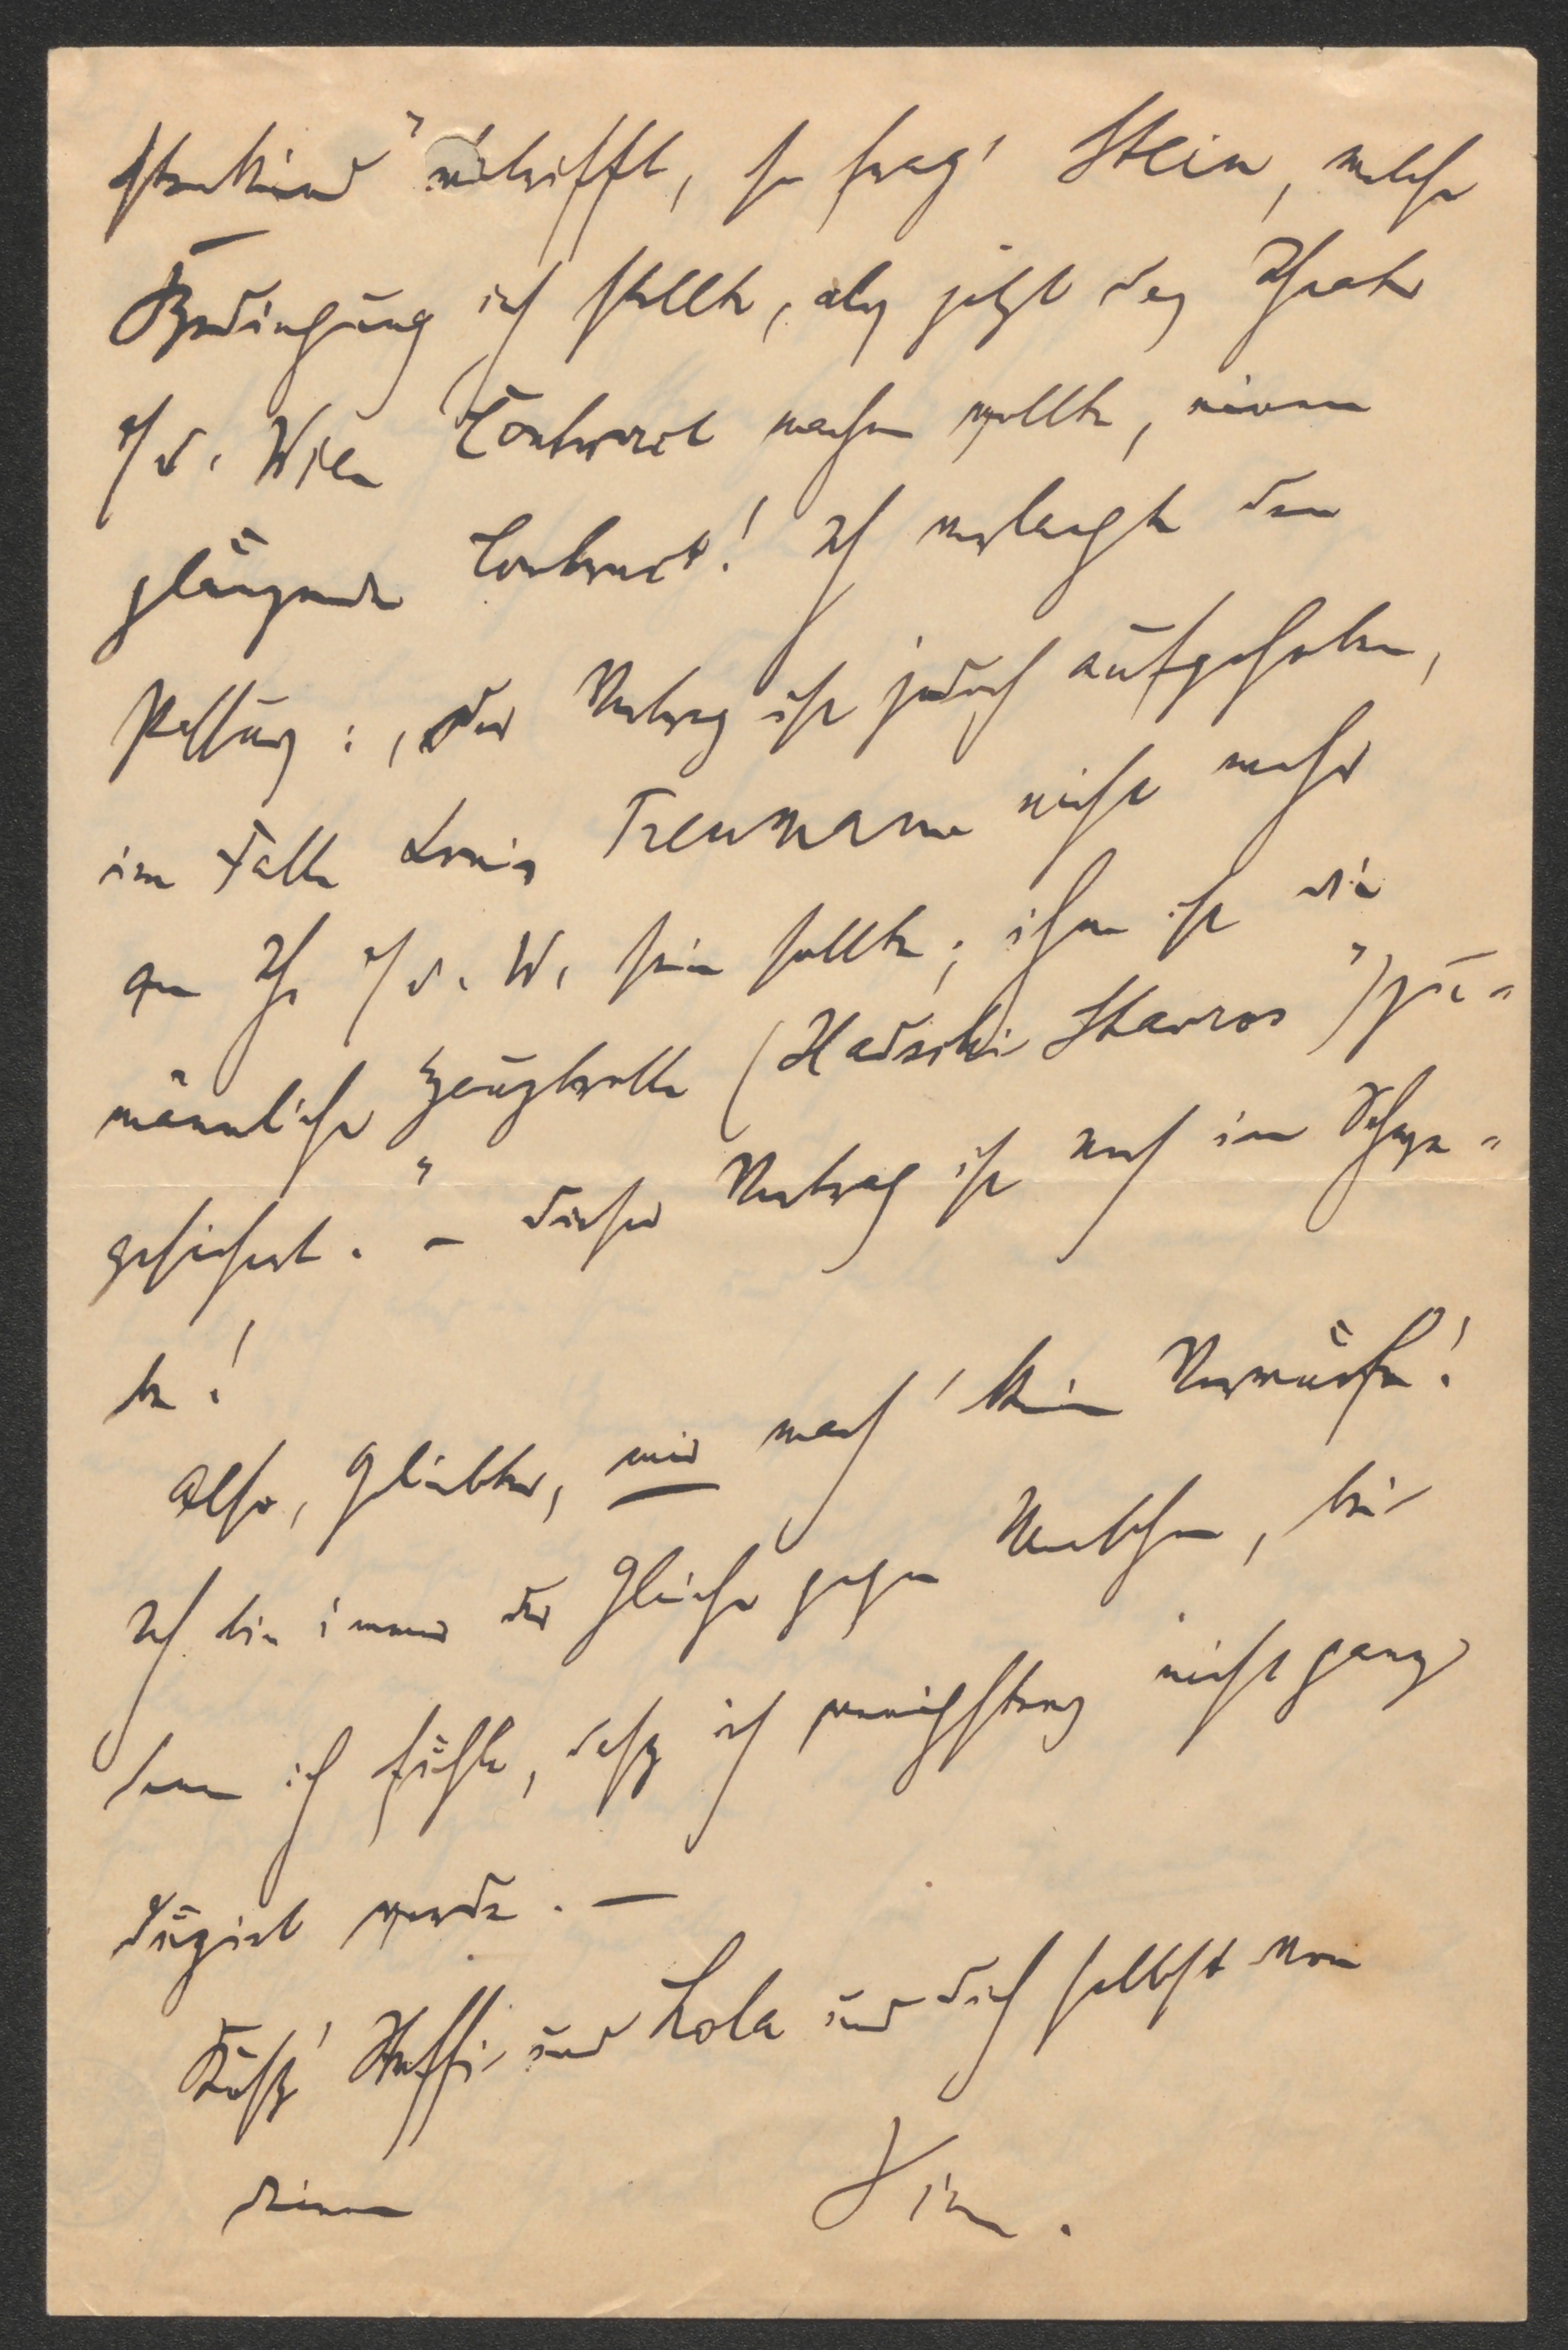 sterkind" anbetrifft, so frag' Stein, welche
Bedingung ich stellte, als jetzt das Theater
a/d. Wien Contract machen wollte, einen
glänzenden Contract! Ich verlangte den
Passus: „Der Vertrag ist jedoch aufgehoben,
im Falle Louis Treumann nicht mehr
am Th. a/d. W. sein sollte; ihm ist die
männliche Hauptrolle (Hadschi Stavros) zu-
gesichert." – Dieser Vertrag ist noch im Schwe-
be!
Also, Geliebter, mir mach' keine Vorwürfe!
Ich bin immer der Gleiche gegen Menschen, bei
denen ich fühle, daß ich wenigstens nicht ganz
düpiert werde. –
Küß' Steffi und Lola und dich selbst von
deinem Vic.